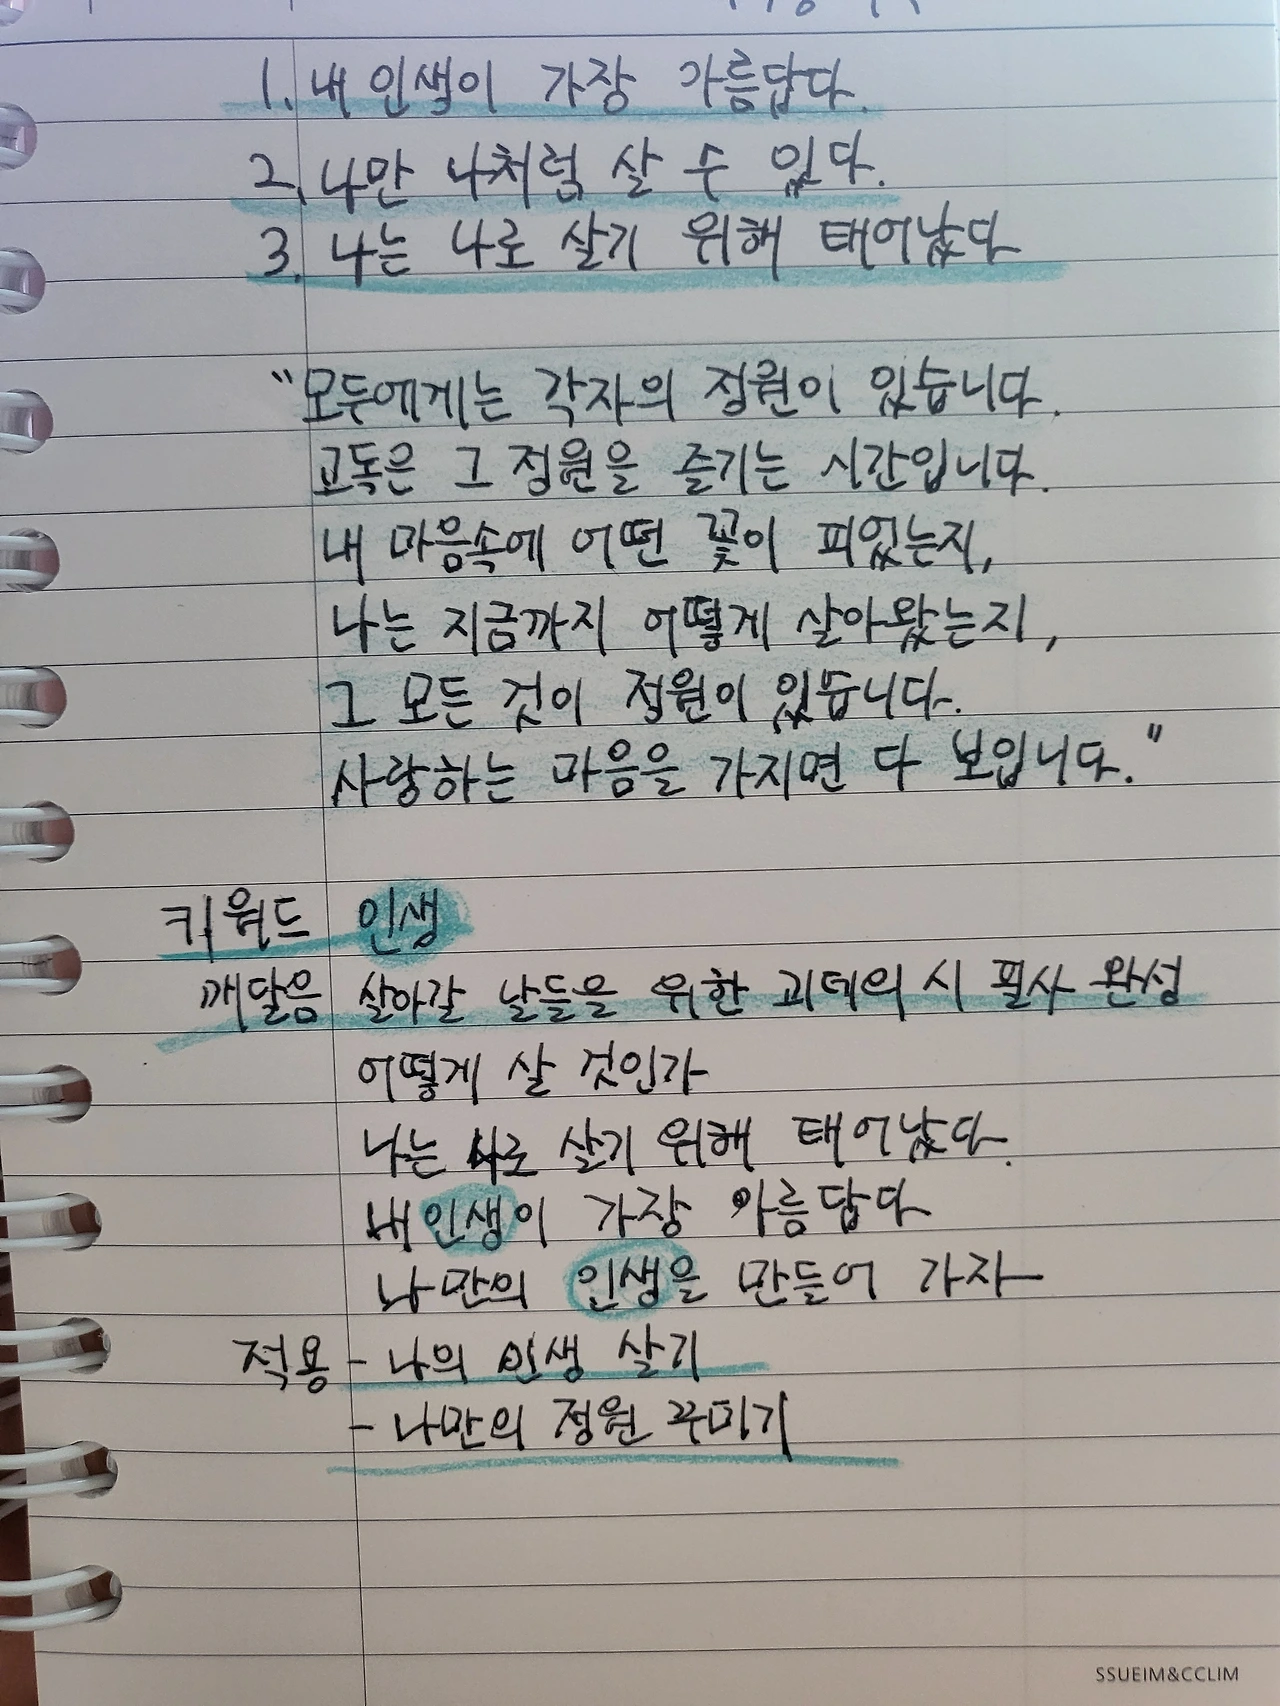 1. 내 인생이 가장 아름답다.
2. 나만 나처럼 살 수 있다.
3. 나는 나로 살기 위해 태어났다
"모두에게는 각자의 정원이 있습니다.
고독은 그 정원을 즐기는 시간입니다.
내 마음속에 어떤 꽃이 피었는지,
나는 지금까지 어떻게 살아왔는지,
그 모든 것이 정원이 있습니다.
사랑하는 마음을 가지면 다 보입니다."
키워드 인생
깨달음 살아갈 날들을 위한 괴테의 시 필사 완성
어떻게 살 것인가
나는 나로 살기 위해 태어났다.
내 인생이 가장 아름답다
나만의 인생을 만들어 가자
적용 - 나의 인생 살기
- 나만의 정원 꾸미기
SSUEIM&CCLIM